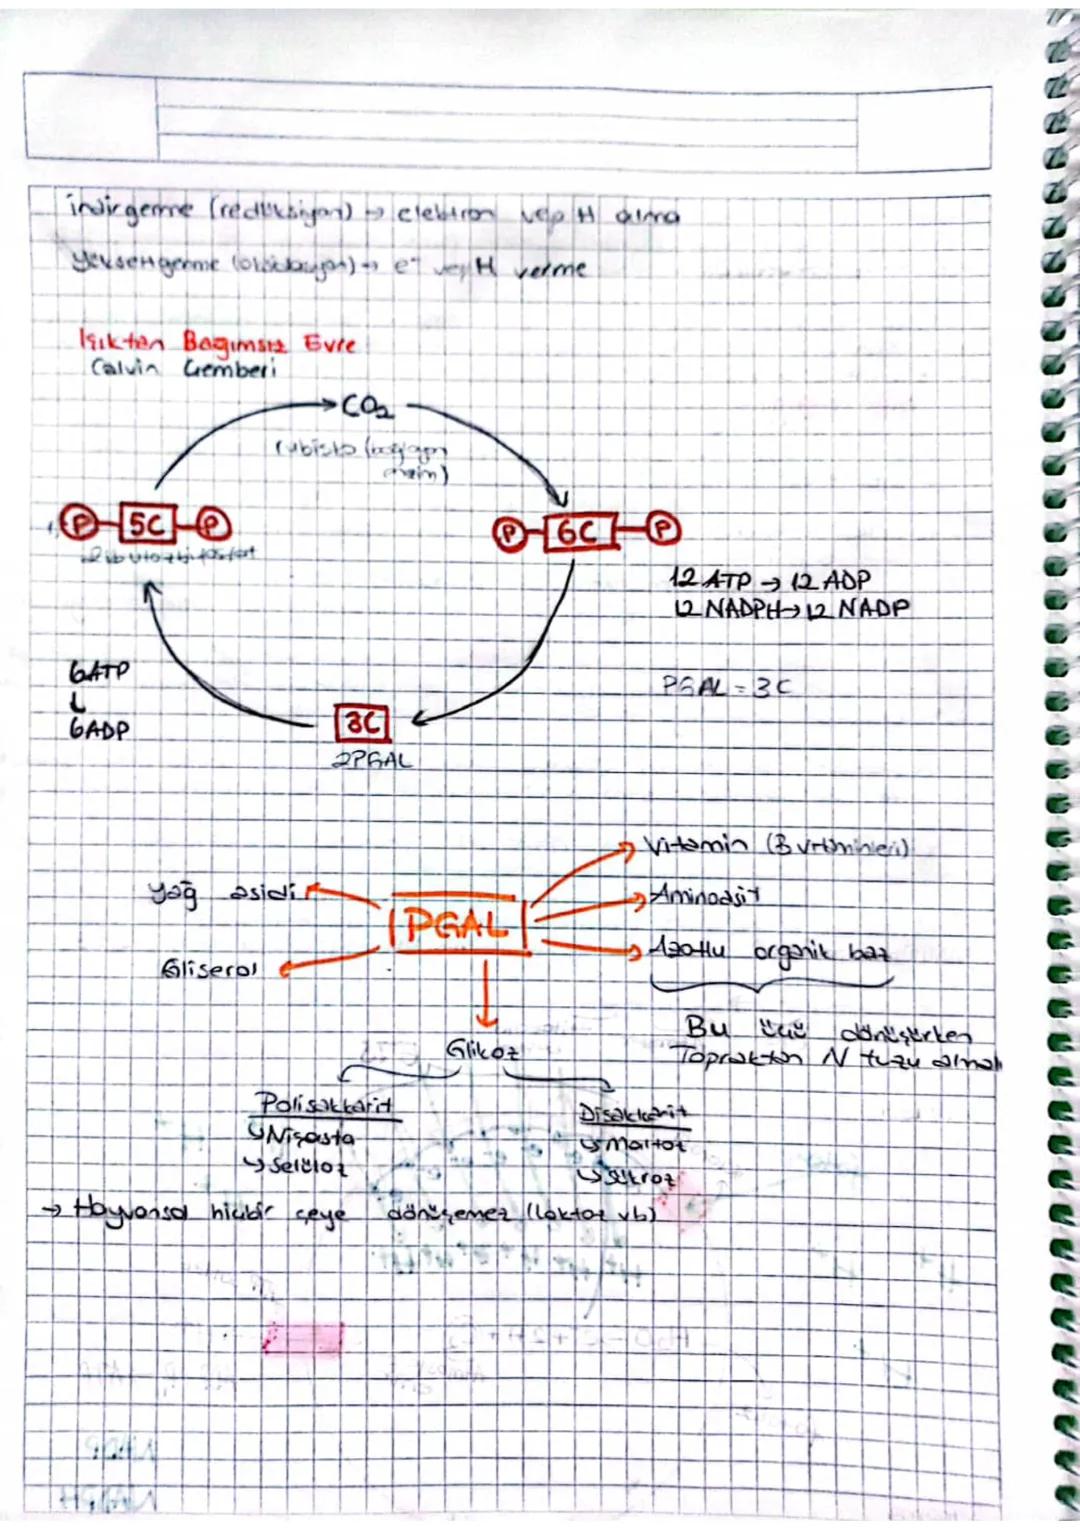 indirgenme (redüksiyon) → elektron veya H alma
yükseltgenme (oksidasyon) → e⁻ veya H verme
Işıktan Bağımsız Evre
Calvin Çemberi
CO₂
rubisko (bağlayan
enzim)
P 5C P
P 6C P
Ribulozbifosfat
12 ATP → 12 ADP
12 NADPH → 12 NADP
6ATP
↓
6ADP
PGAL = 3C
3C
2PGAL
Vitamin (B vitaminleri)
Yağ asidi
Aminoasit
PGAL
Azotlu organik baz
Gliserol
Bu üçü dönüşürken
Topraktan N tuzu almalı
Glikoz
Polisakkarit
Disakkarit
↳ Nişasta
↳ Maltoz
↳ Selüloz
↳ Sükroz
→ Hayvansal hiçbir şeye dönüşemez (laktoz vb)